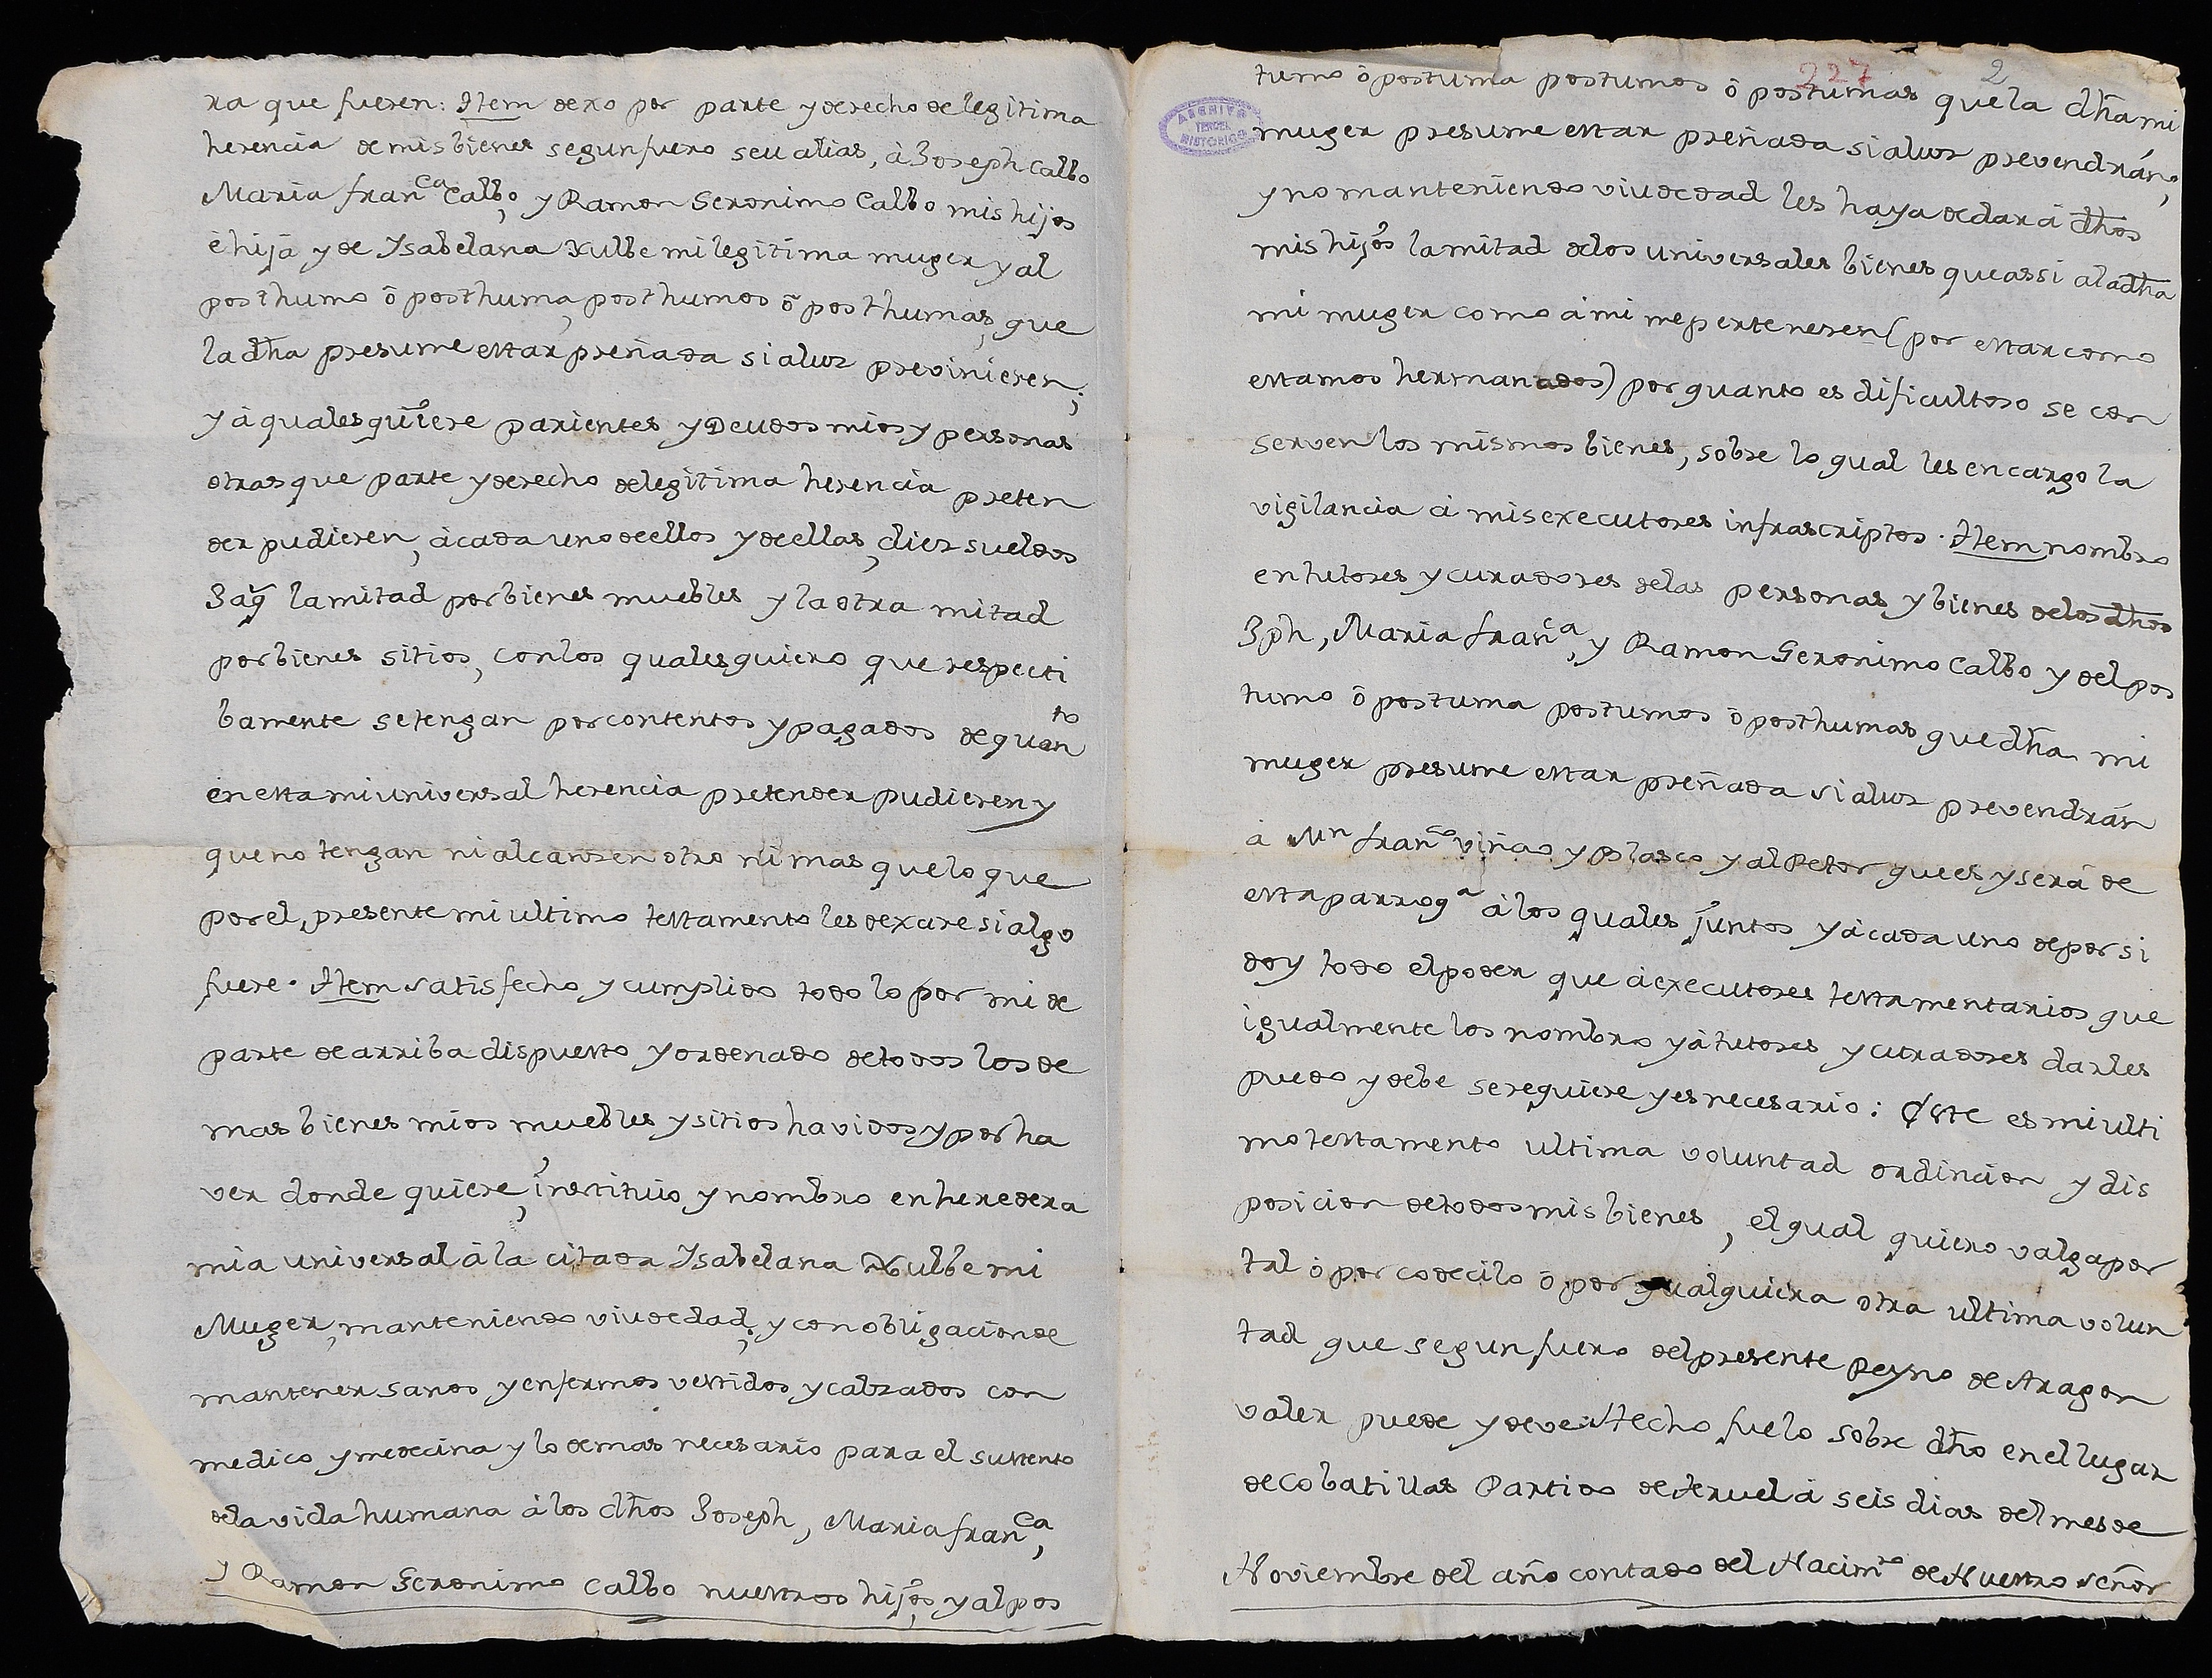 ra que fueren: Item dexo por parte y derecho de legitima
herencia de mis bienes segun fuero seu alias, à Joseph Calbo
Maria fran.ca Calbo, y Ramon Geronimo Calbo mis hijos
è hija y de Ysabelana Xulbe mi legitima muger y al
posthumo ô posthuma, posthumos ô posthumas, que
la dha presume estar preñada si a luz previnieren;
y à qualesquiere parientes y Deudos mios y personas
otras que parte y derecho de legitima herencia preten
der pudieren, à cada uno de ellos y de ellas, diez sueldos
Jaq la mitad por bienes muebles y la otra mitad
por bienes sitios, con los quales quiero que respecti
bamente se tengan por contentos y pagados de quanto
en esta mi universal herencia pretender pudieren y
que no tengan ni alcanzen otro ni mas que lo que
por el, presente mi ultimo testamento les dexare si algo
fuere. Item satisfecho y cumplido todo lo por mi de
parte de arriba dispuesto y ordenado de todos los de
mas bienes mios muebles y sitios havidos y por ha
ver donde quiere, instituio y nombro en heredera
mia universal â la citada Ysabelana Xulbe mi
Muger, manteniendo viudedad; y con obligacion de
mantener sanos y enfermos vestidos y calzados con
medico y medecina y lo demas necesario para el sustento
de la vida humana à los dhos Joseph, Maria fran.ca,
y Ramon Geronimo Calbo nuestros hijos, y al pos
227 2
tumo ô postuma postumos ô postumas que la dha mi
ARCHIVO
TERUEL
HISTORICO
muger presume estar preñada si a luz prevendrán,
y no manteniendo viudedad les haya de dar à dhos
mis hijos la mitad de los universales bienes que assi a la dha
mi muger como â mi me pertenesen (por estar como
estamos hermanados) por quanto es dificultoso se con
serven los mismos bienes, sobre lo qual les encargo la
vigilancia à mis executores infrascriptos. Item nombro
en tutores y curadores de las personas y bienes de los dhos
Jph, Maria fran.a, y Ramon Geronimo Calbo y del pos
tumo ô postuma postumos ô posthumas que dha mi
muger presume estar preñada si a luz prevendrán
à Mn fran.co viñas y Blasco y al Retor que es y será de
esta parroq.a à los quales juntos y à cada uno de por si
doy todo el poder que à executores testamentarios que
igualmente los nombro y à tutores y curadores darles
puedo y debe se requiere y es necesario: Este es mi ulti
mo testamento ultima voluntad ordincion y dis
posicion de todos mis bienes, el qual quiero valga por
tal ô por codecilo ô por qualquiera otra ultima volun
tad que segun fuero del presente Reyno de Aragon
valer puede y deve Hecho fue lo sobre dho en el lugar
de Cobatillas Partido de teruel â seis dias del mes de
Noviembre del año contado del Nacim.to de Nuestro señor